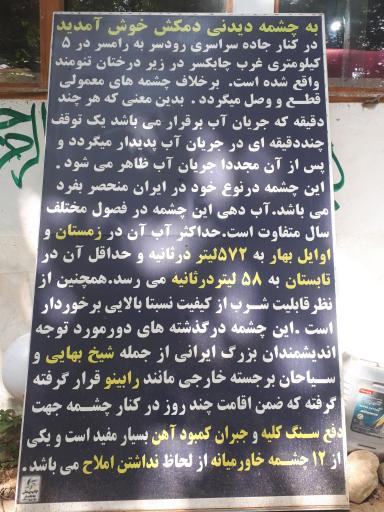 به چشمه دیدنی دمکش خوش آمدید
در کنار جاده سراسری رودسر به رامسر در ۵
کیلومتری غرب چابکسر در زیر درختان تنومند
واقع شده است. برخلاف چشمه های معمولی
قطع و وصل میگردد. بدین معنی که هر چند
دقیقه که جریان آب برقرار می باشد یک توقف
چنددقیقه ای در جریان آب پدیدار میگردد و
پس از آن مجددا جریان آب ظاهر می شود.
این چشمه درنوع خود در ایران منحصر بفرد
می باشد.آب دهی این چشمه در فصول مختلف
سال متفاوت است.حداکثر آب آن در زمستان و
اوایل بهار به ۵۷۲لیتر درثانیه و حداقل آن در
تابستان به ۵۸ لیتردرثانیه می رسد.همچنین از
نظرقابلیت شرب از کیفیت نسبتا بالایی برخوردار
است.این چشمه درگذشته های دورمورد توجه
اندیشمندان بزرگ ایرانی از جمله شیخ بهایی و
سیاحان برجسته خارجی مانند رابینو قرار گرفته
گرفته که ضمن اقامت چند روز در کنار چشمه جهت
دفع سنگ کلیه و جبران کمبود آهن بسیار مفید است و یکی
از ۱۲ چشمه خاورمیانه از لحاظ نداشتن املاح می باشد.